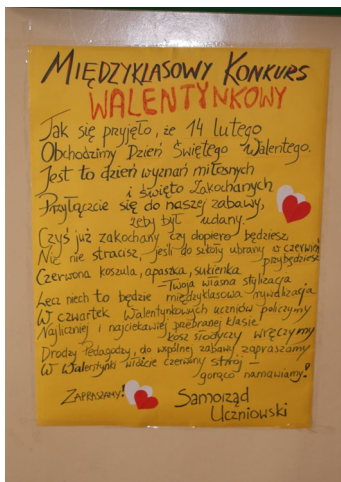 MIĘDZYKLASOWY KONKURS
WALENTYNKOWY
Jak się przyjęło, że 14 lutego
Obchodzimy Dzień Świętego Walentego.
Jest to dzień wyznań miłosnych
i święto Zakochanych
Przyłączcie się do naszej zabawy,
żeby był udany.
Czyś już zakochany czy dopiero będziesz,
Nic nie stracisz, jeśli do szkoły ubrany w czerwień
przybędziesz
Czerwona koszula, apaszka, sukienka
Twoja własna stylizacja
Lecz niech to będzie międzyklasowa rywalizacja
W czwartek Walentynkowych uczniów policzymy
Najliczniej i najciekawiej przebranej klasie
kosz słodyczy wręczymy
Drodzy Pedagodzy, do wspólnej zabawy zapraszamy
W Walentynki włóżcie czerwony strój –
gorąco namawiamy!
ZAPRASZAMY!
Samorząd
Uczniowski